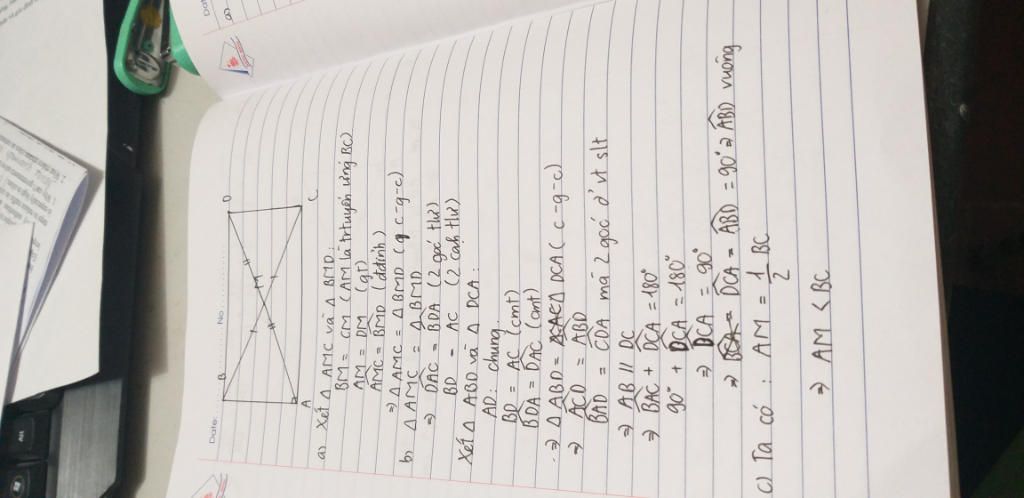 Date: ............ No: ............
B
D
M
A
C
a) Xét △ AMC và △ BMD:
BM = CM (AM là trtuyến ứng BC)
AM = DM (gt)
AMC = BMD (đđỉnh)
⇒ △ AMC = △ BMD (c-g-c)
b) △ AMC = △ BMD
⇒ DAC = BDA (2 góc tứ)
BD = AC (2 cạh tứ)
Xét △ ABD và △ DCA:
AD: chung
BD = AC (cmt)
BDA = DAC (cmt)
⇒ △ ABD = △ DCA (c-g-c)
⇒ ACD = ABD
BAD = CDA mà 2 góc ở vt slt
⇒ AB // DC
⇒ BAC + DCA = 180°
90° + DCA = 180°
⇒ DCA = 90°
⇒ DCA = ABD = 90° ⇒ ABD vuông
c) Ta có: AM = 1/2 BC
⇒ AM < BC